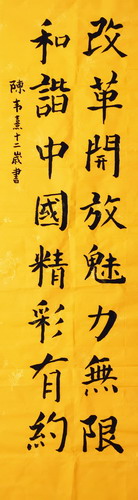 改革開放魅力無限
和諧中國精彩有約
陳韦熹十二歲書